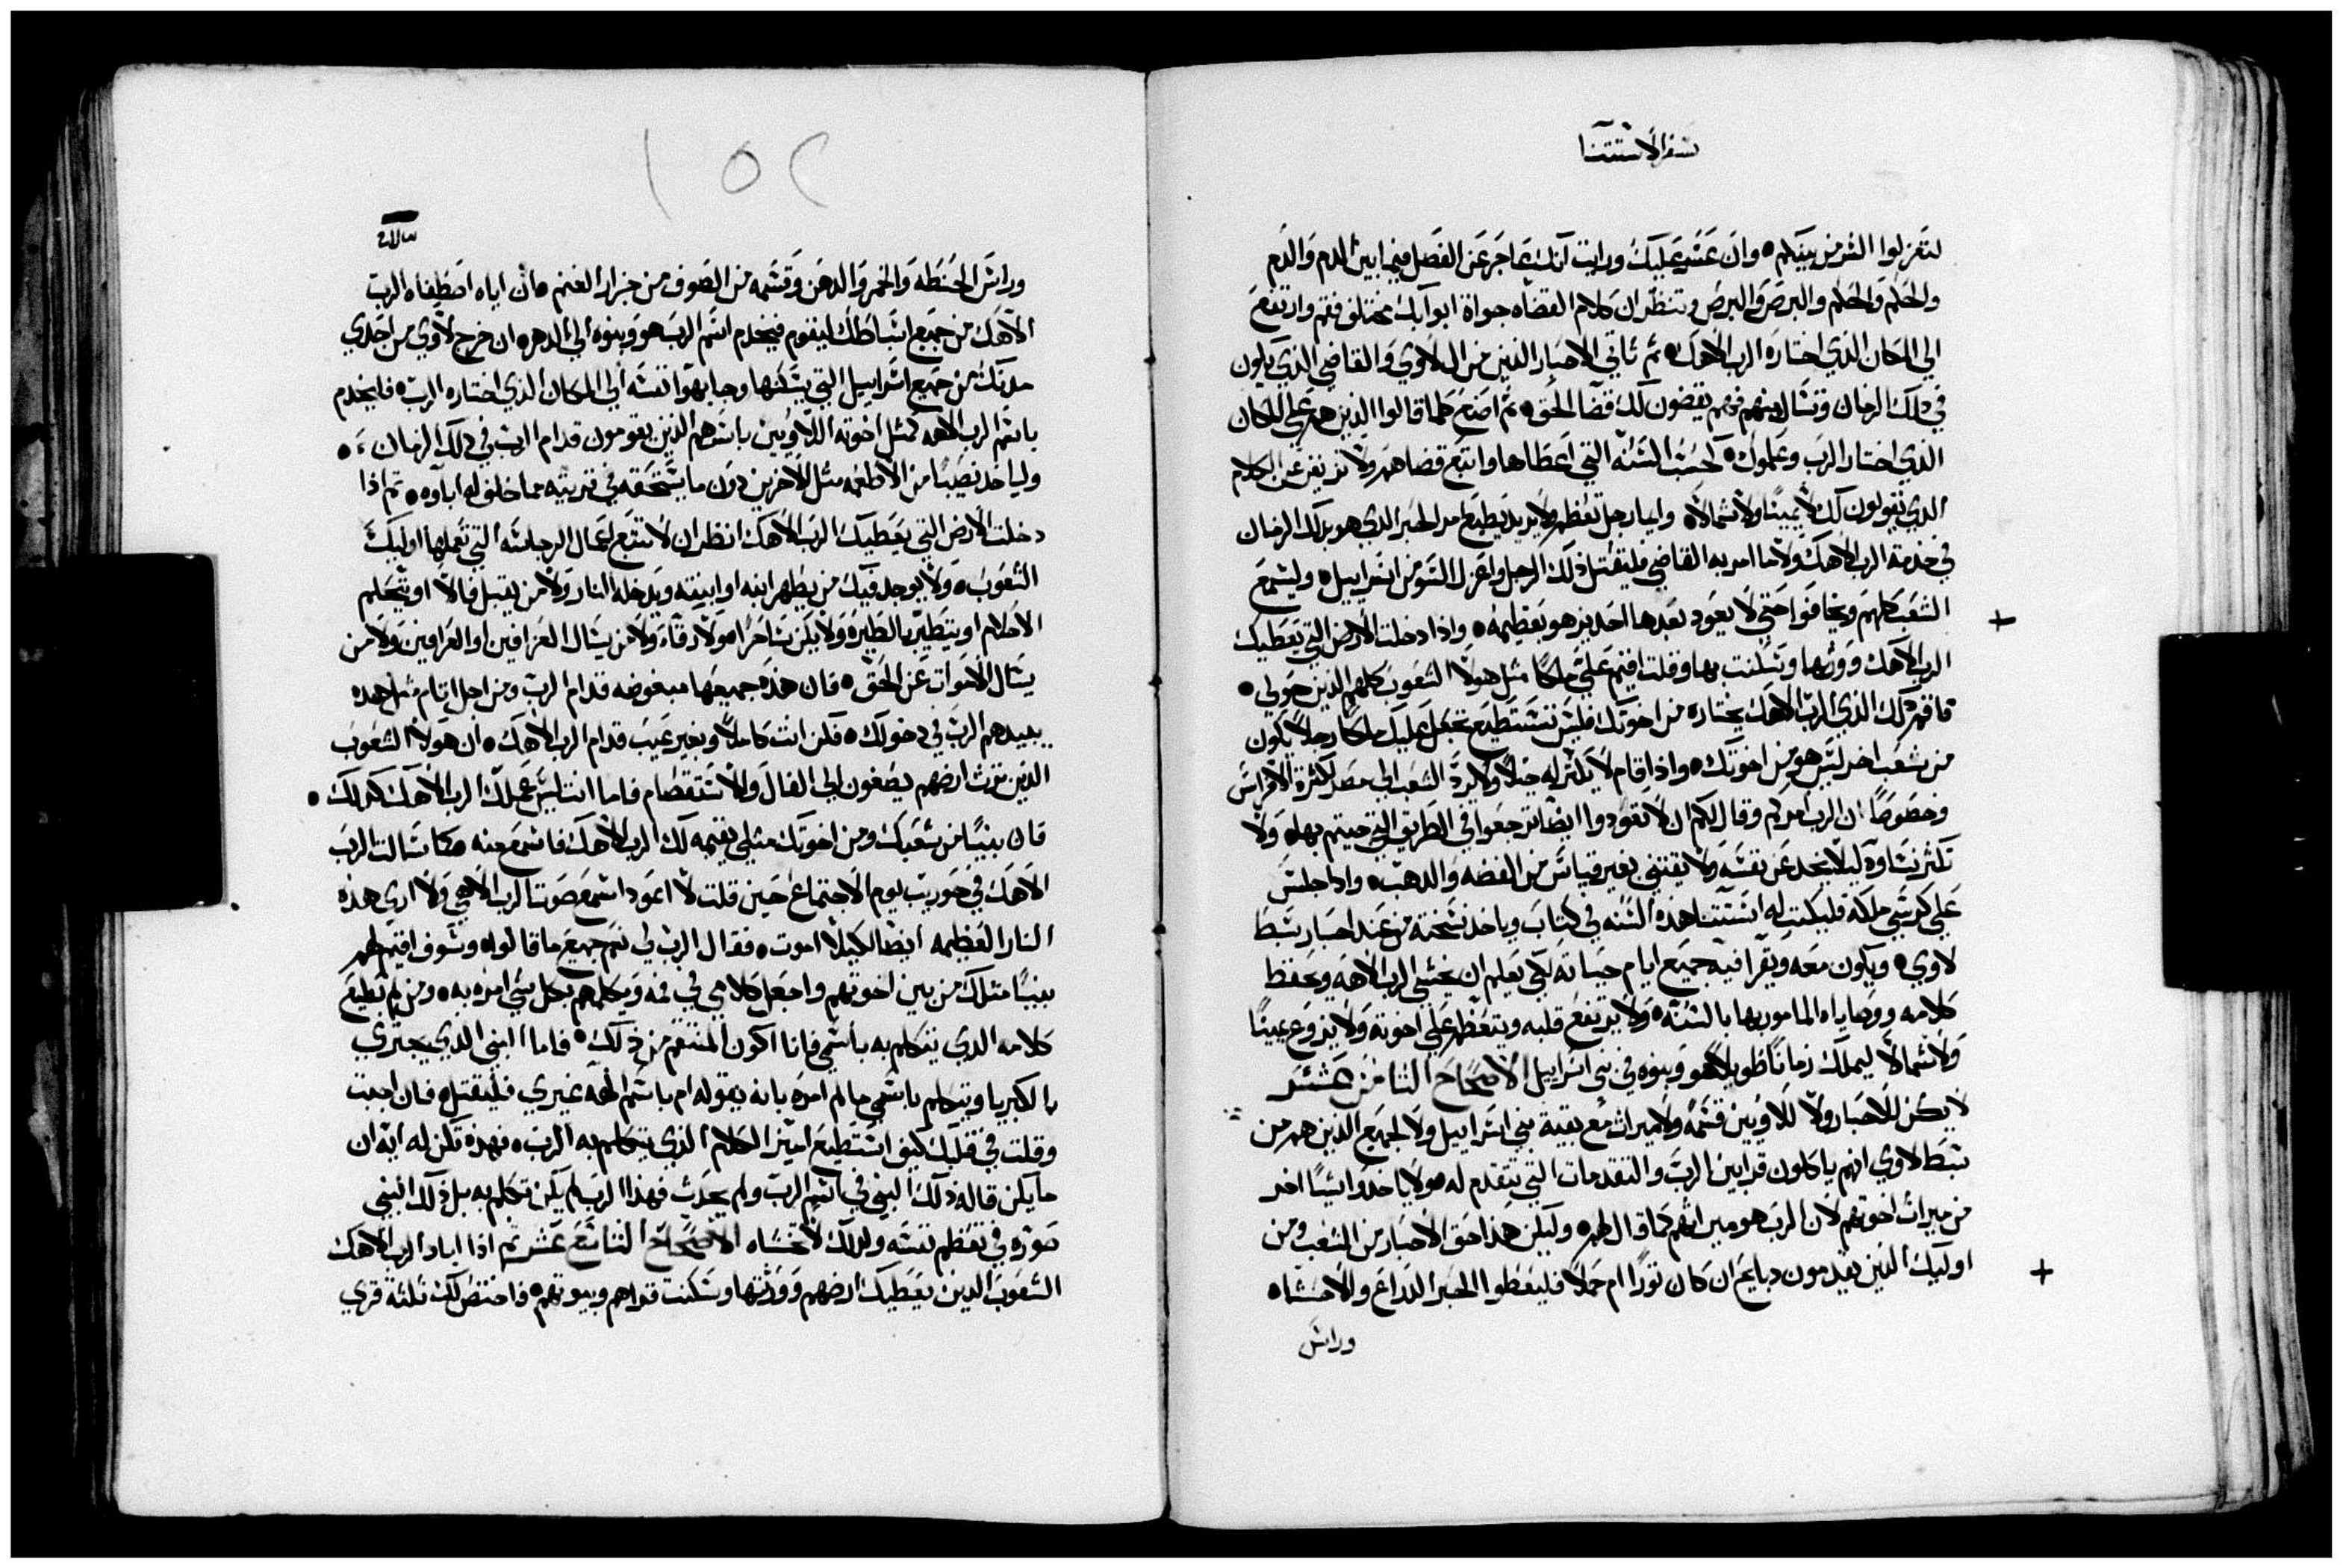 سفر الاستتنا
لتعزلوا الشر من بينكم ٥ وان عَسَر عَليكَ ورايت انك عاجَز عَن الفَصل فيما بين الدم وَالدَم
والحكم وَالحكم والبرصَ وَالبرصَ وتنظر ان كلام القضاه جواة ابوابك مختلف فقم وارتفعَ
الي المكان الذي اختاره الرب الاهك ٥ تم تاتي الاحبار الذين من ال لاوي وَالقاضي الذي يكون
في دلك الزمان وتسَال منهم فهم يقضون لك قضآ الحق ٥ تم اصنع كلما قالوا الذين هم علي المكان
الذي اختار الرب وعَلموك ٥ كحسَب السَنه التي اعَطاها واتبع قضاهم ولا تزيغ عن الكلام
الذي يقولون لك لا يمينًا ولا شمالاً ٥ وايما رجل تعَظم ولا يريد يطيعَ امر الحبر الذي هو بدلك الزمان
في خدمة الرب الاهك ولا ما امر به القاضي فليقتل ذلك الرجل واعزل السَو من اسَراييل ٥ وليسَمعَ
الشعَب كلهم ويخافوا حتي لا يعَود بعَدها احَد يزهو بعَظيمه ٥ واذا دخلت الارض التي يعَطيك
الرب الاهك وورتها وسَكنت بها وقلت اقيم عَليَّ ملكًا مثل هَولآ الشعَوب كلهم الذين حَولي ٥
فاقم لك الذي الرب الاهك يختاره من اخوتك فليس تسَتطيعَ تجعَل عَليك ملكًا رجلاً يكون
من شعَب اخر ليسَ هو من اخوتك ٥ واذا قام لا يكثر له خيلاً ولا يردَّ الشعَب الي مصر لكثرة الافراسَ
وخصَوصًا ان الرب امركم وقال لكم ان لا تعَودوا ايضًا ترجعَوا في الطريق التي جيتم بها ٥ وَلا
تكثر نسَاوه ليلا يخدعَن نفسَه وَلا يقتني بغير قياسَ من الفضه والدهب ٥ وادا جلسَ
عَلي كرسَي ملكه فليكتب له اسَتتنا هذه السَنه في كتابَ وياخد نسَخته من عَند احَبار سَبط
لاوي ٥ ويكون معَه ويقرا فيه جميعَ ايام حيَاته لكي يعَلم ان يخشي الرب الاهه ويحَفظ
كلامه ووصَاياه المامور بها بالسَنه ٥ وَلا يرتفعَ قلبه ويتعَظم علي اخوته وَلا يزوغ يمينًا
وَلا شمالاً ليملك زمانًا طويلاً هو وبنوه في بني اسَراييل الاصَحاح التامن عَشر
لا يكن للاحبار ولا للاويين قسَمه ولا ميرات مع بقية بني اسَراييل ولا لجميعَ الذين هم من
سَبط لاوي انهم ياكلون قرابين الربَ والتقدمات التي تتقدم له ٥ ولا ياخدوا شيًا اخر
من ميرات اخوتهم لان الرب هو ميراتهم كما قال لهم ٥ وليكن هَذا حَق الاحَبار من الشعَب ومن
اوليك الذين يقدمون دبايح ان كان تورًا ام حَملاً فليعَطوا الحبر الدراع والاحشاه
وراسَ
١٥٢
وراسَ الحنَطه وَالخمر وَالدهَن وَقسَمه من الصَوف من جزاز الغنم ٥ لان اياه اصَطفاه الربَ
الاهَك من جَميعَ اسَباطك ليقوم فيخدم اسَم الربَ هو وبنوه الي الدهر ٥ ان خرج لاوي من احَدي
مدنك من جَميع اسَراييل التي يسَكنها وجا بهوا نفسَه الي المكان الذي اختاره الرب ٥ فليخدم
باسَم الرب الاهه كمثل اخوته اللاويين باسَرهم الذين يقومون قدام الرب في دلك الزمان ٥
ولياخد نصَيبًا من الاطعَمه متل الاخرين دَون ما يسَتحقه في تربيته مما خلف له اباوه ٥ تم اذا
دخلت الارض التي يعَطيك الرب الاهك انظر ان لا تتبع اعَمال الرجاسَه التي تعَملها اوليك
الشعَوب ٥ وَلا يوجد فيك من يطهر ابنه او ابنته ويدخله النار وَلا من يقبل فالاً او يحَلم
الاحَلام او يتطيَّر بالطيره ولا يكن سَاحرًا ٥ ولا رقآء ولا من يسَال العَرافين او العَرافين ولا من
يسَال الاموات عَن الحَق ٥ فان هذه جميعَها مبغوضه قدام الربَ ومن اجل اتام مثل هده
يبيدهم الربَ في دخولك ٥ فكن انت كاملاً وبغير عَيب قدام الرب الاهك ٥ ان هَولآ الشعَوب
الذين ترث ارضهم يصَغون الي الفال وَالاسَتقصَام فاما انت ليسَ عَملك الرب الاهك كدلك ٥
فان نبيًا من شعَبك ومن اخوتك متلي يقيمه لك الرب الاهك فاسَمع منه ٥ كما سَالت الربَ
الاهَك في حَوريب يوم الاجتماعَ حَين قلت لا اعَود اسَمع صَوت الرب الاهي وَلا اري هذه
النار العَظيمه ايضًا لكيلا اموت ٥ فقال الرب لي نعَم جميعَ ما قالوا ٥ وسَوف اقيم لهم
نبيًا متلك من بين اخوتهم واجعَل كلامي في فمه وَيكلمهم بكل شي امره به ٥ ومن لم يطيعَ
كلامه الدي يتكلم به باسَمي فانا اكون المنتقم من ذلك ٥ فاما النبي الدي يجتري
بالكبريا ويتكلم باسَمي ما لم امره بانه يقوله ام باسَم الهَه غيري فليقتل ٥ فان اجبت
وقلت في قلبك كيف اسَتطيعَ اميز الكلام الذي يتكلم به الربَ ٥ فهذه تكن له ايه ان
ما يكن قاله ذلك النبي في اسَم الربَ ولم يحَدث فهذا الرب لم يكن تكلم به بل ذلك النبي
صَوره في تعَظم نفسَه ولدلك لا تخشاه الاصَحاحَ التاسَعَ عَشر تم اذا اباد الرب الاهك
الشعَوبَ الدين يعَطيك ارضهم وَورتتها وسَكنت قراهم وبيوتهم ٥ فاختصَ لك تلتة قري